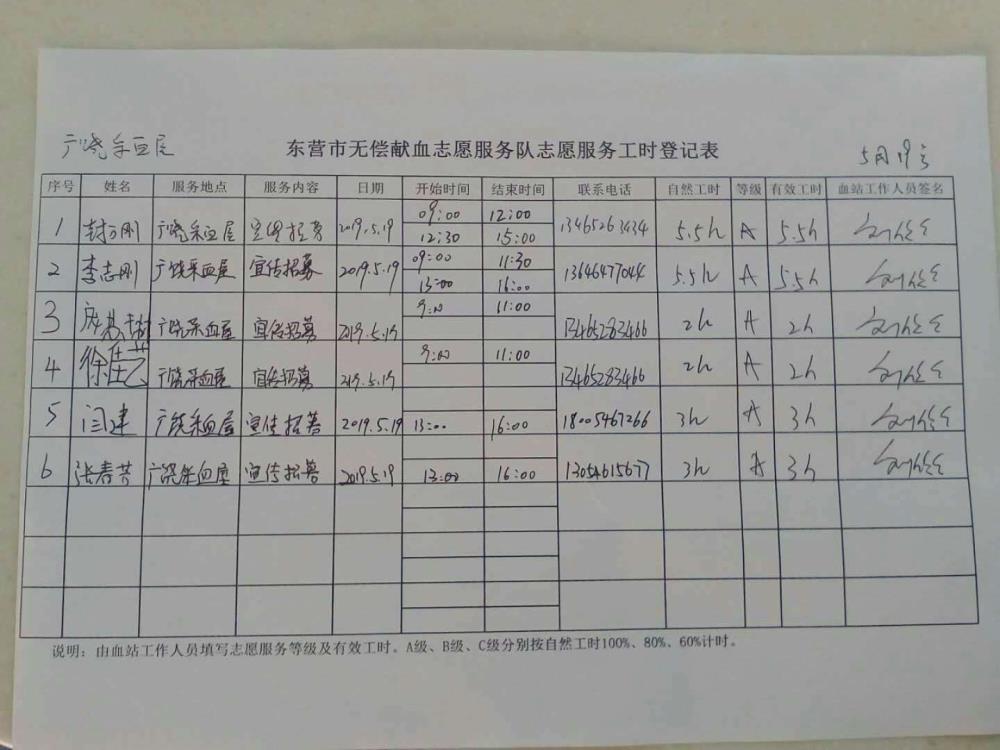 广饶采血屋 东营市无偿献血志愿服务队志愿服务工时登记表 5月19号
序号 姓名 服务地点 服务内容 日期 开始时间 结束时间 联系电话 自然工时 等级 有效工时 血站工作人员签名
1 封方刚 广饶采血屋 宣传招募 2019.5.19 09:00 12:00 13465263434 5.5h A 5.5h
12:30 15:00
2 李志刚 广饶采血屋 宣传招募 2019.5.19 09:00 11:30 13646477044 5.5h A 5.5h
13:00 16:00
3 广饶采血屋 宣传招募 2019.5.19 9:00 11:00 13465283466 2h A 2h
4 徐 广饶采血屋 宣传招募 2019.5.19 9:00 11:00 13465283466 2h A 2h
5 闫建 广饶采血屋 宣传招募 2019.5.19 13:00 16:00 18005467266 3h A 3h
6 张春芳 广饶采血屋 宣传招募 2019.5.19 13:00 16:00 13054615677 3h A 3h
说明：由血站工作人员填写志愿服务等级及有效工时。A级、B级、C级分别按自然工时100%、80%、60%计时。